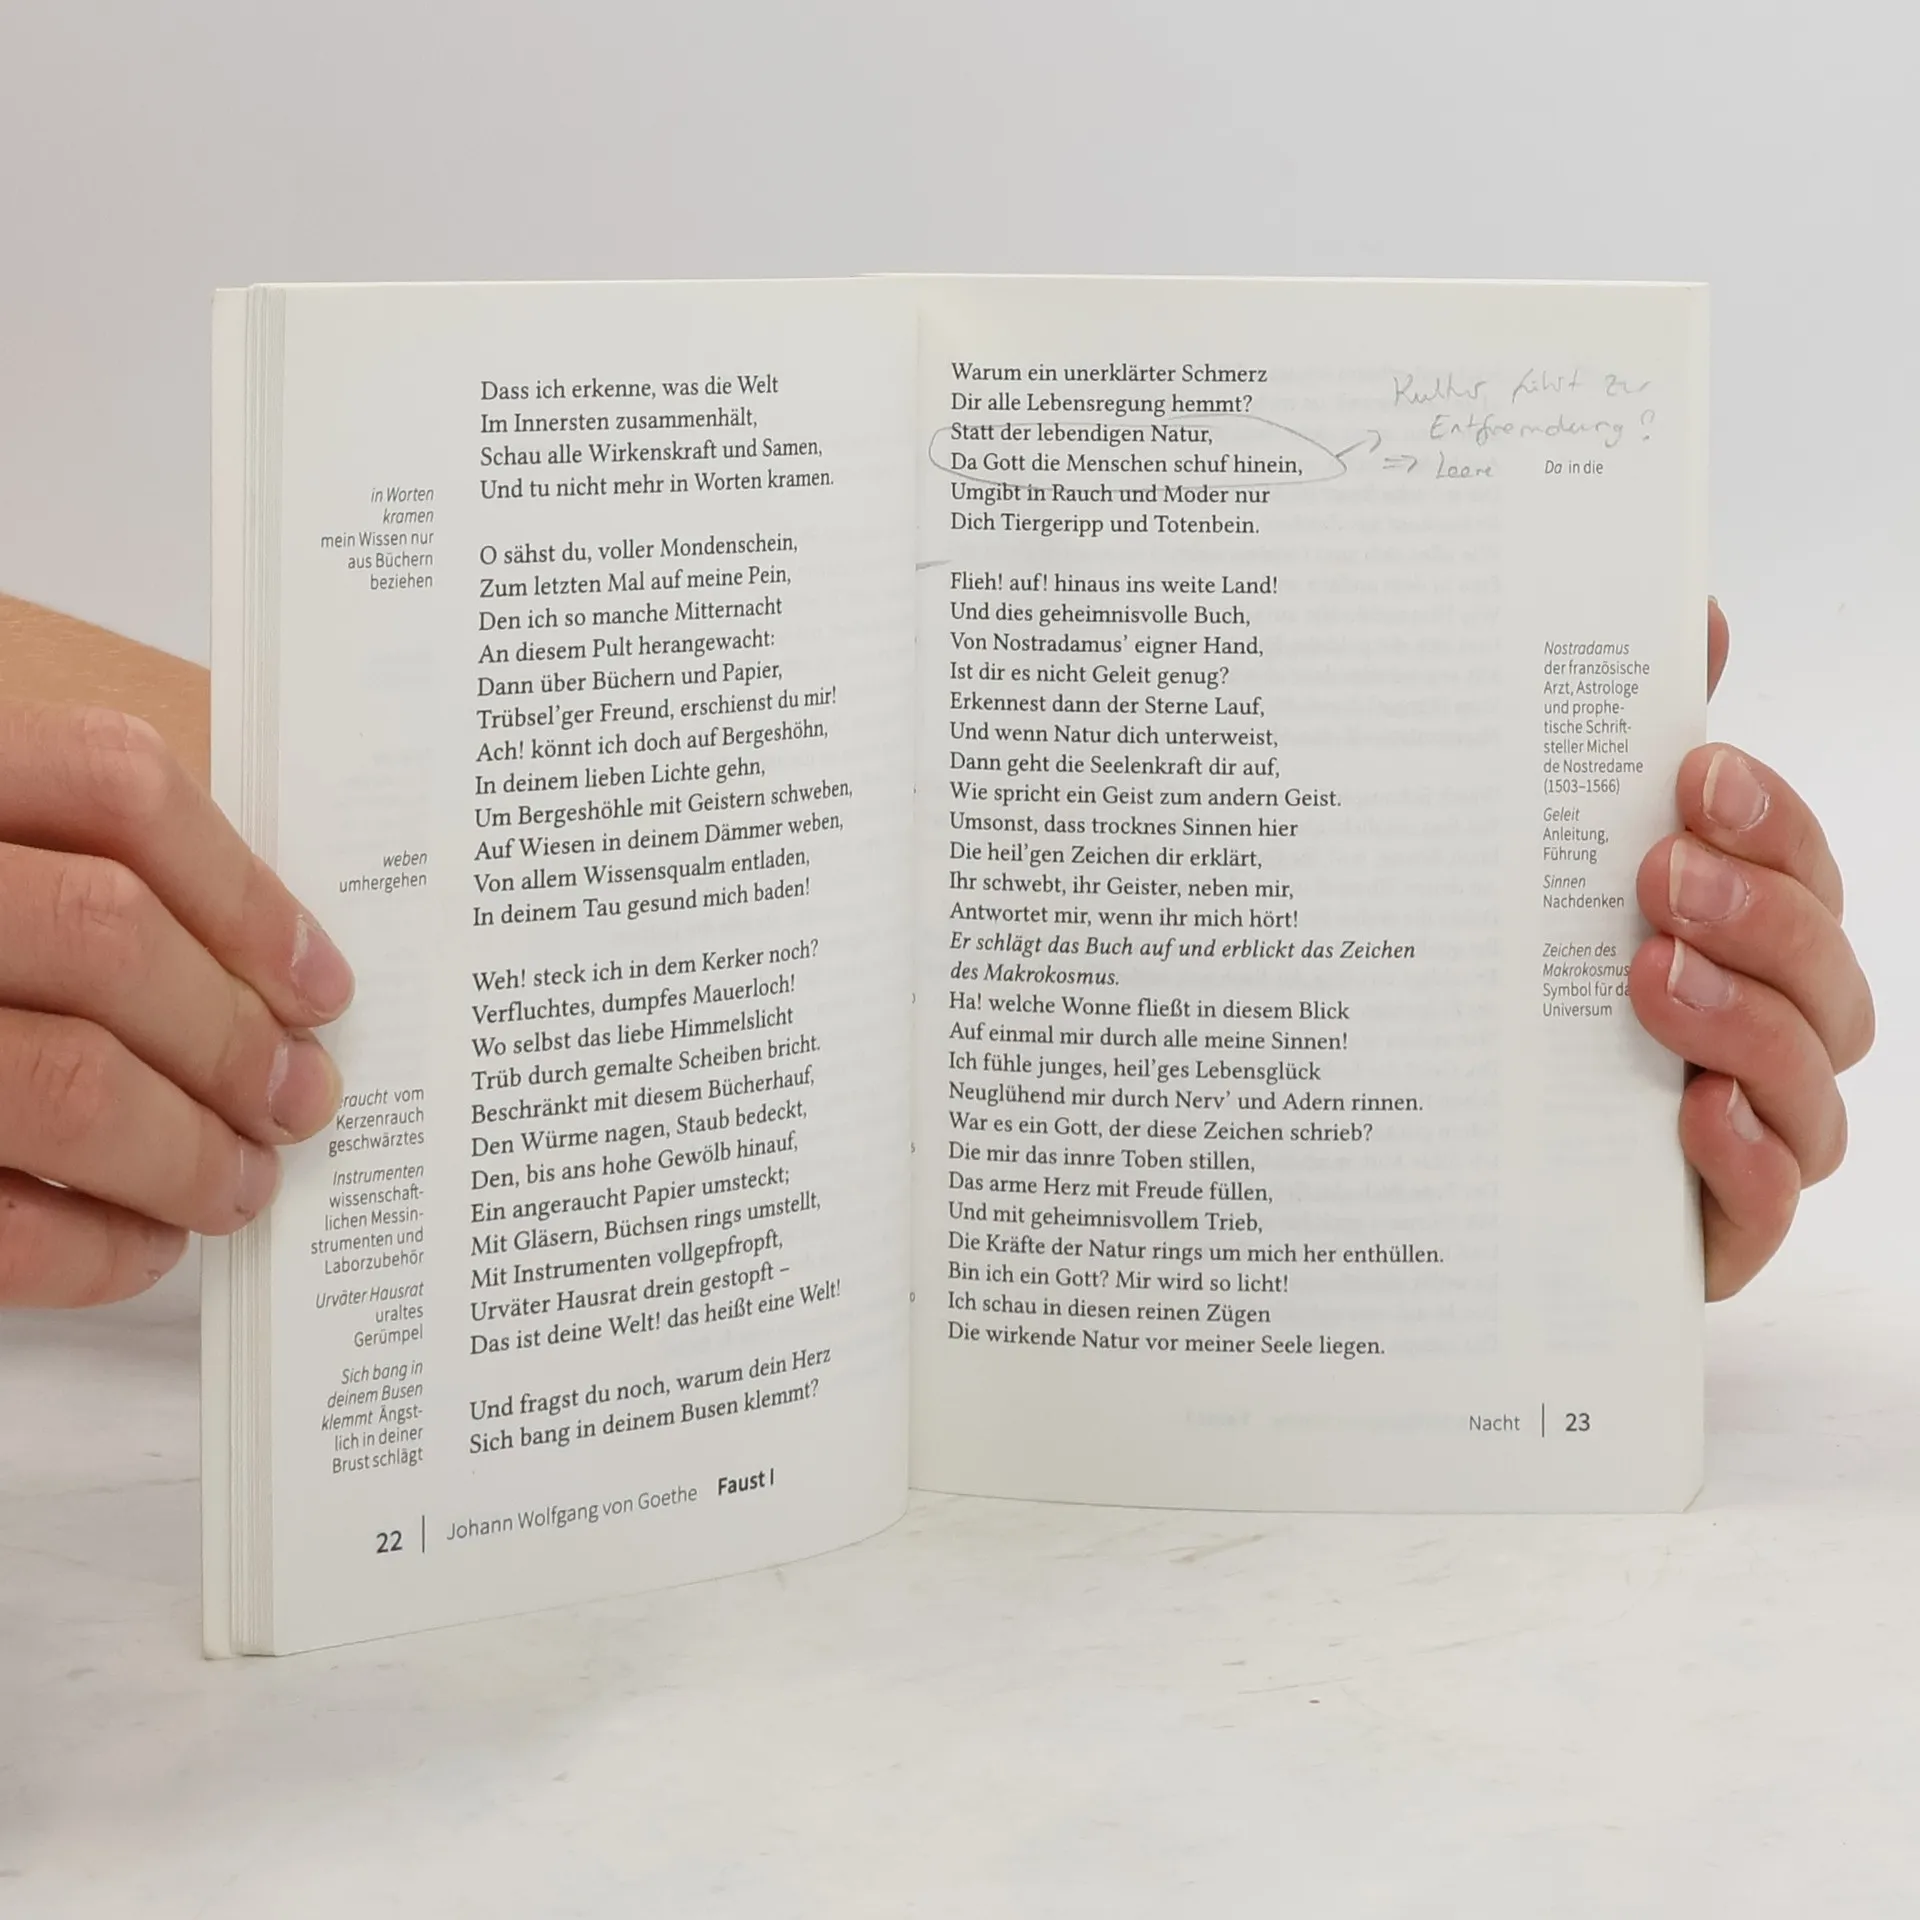 Dass ich erkenne, was die Welt
Im Innersten zusammenhält,
Schau alle Wirkenskraft und Samen,
Und tu nicht mehr in Worten kramen.
in Worten
kramen
mein Wissen nur
aus Büchern
beziehen
O sähst du, voller Mondenschein,
Zum letzten Mal auf meine Pein,
Den ich so manche Mitternacht
An diesem Pult herangewacht:
Dann über Büchern und Papier,
Trübsel’ger Freund, erschienst du mir!
Ach! könnt ich doch auf Bergeshöhn,
In deinem lieben Lichte gehn,
Um Bergeshöhle mit Geistern schweben,
Auf Wiesen in deinem Dämmer weben,
Von allem Wissensqualm entladen,
In deinem Tau gesund mich baden!
weben
umhergehen
Weh! steck ich in dem Kerker noch?
Verfluchtes, dumpfes Mauerloch!
Wo selbst das liebe Himmelslicht
Trüb durch gemalte Scheiben bricht.
Beschränkt mit diesem Bücherhauf,
Den Würme nagen, Staub bedeckt,
Den, bis ans hohe Gewölb hinauf,
Ein angeraucht Papier umsteckt;
Mit Gläsern, Büchsen rings umstellt,
Mit Instrumenten vollgepfropft,
Urväter Hausrat drein gestopft –
Das ist deine Welt! das heißt eine Welt!
raucht vom
Kerzenrauch
geschwärztes
Instrumenten
wissenschaft-
lichen Messin-
strumenten und
Laborzubehör
Urväter Hausrat
uraltes
Gerümpel
Sich bang in
deinem Busen
klemmt Ängst-
lich in deiner
Brust schlägt
Und fragst du noch, warum dein Herz
Sich bang in deinem Busen klemmt?
22 | Johann Wolfgang von Goethe Faust I
Warum ein unerklärter Schmerz
Dir alle Lebensregung hemmt?
Statt der lebendigen Natur,
Da Gott die Menschen schuf hinein,
Umgibt in Rauch und Moder nur
Dich Tiergeripp und Totenbein.
Kultur führt zur
Entfremdung?
=> Leere
Da in die
Flieh! auf! hinaus ins weite Land!
Und dies geheimnisvolle Buch,
Von Nostradamus’ eigner Hand,
Ist dir es nicht Geleit genug?
Erkennest dann der Sterne Lauf,
Und wenn Natur dich unterweist,
Dann geht die Seelenkraft dir auf,
Wie spricht ein Geist zum andern Geist.
Umsonst, dass trocknes Sinnen hier
Die heil’gen Zeichen dir erklärt,
Ihr schwebt, ihr Geister, neben mir,
Antwortet mir, wenn ihr mich hört!
Er schlägt das Buch auf und erblickt das Zeichen
des Makrokosmus.
Ha! welche Wonne fließt in diesem Blick
Auf einmal mir durch alle meine Sinnen!
Ich fühle junges, heil’ges Lebensglück
Neuglühend mir durch Nerv’ und Adern rinnen.
War es ein Gott, der diese Zeichen schrieb?
Die mir das innre Toben stillen,
Das arme Herz mit Freude füllen,
Und mit geheimnisvollem Trieb,
Die Kräfte der Natur rings um mich her enthüllen.
Bin ich ein Gott? Mir wird so licht!
Ich schau in diesen reinen Zügen
Die wirkende Natur vor meiner Seele liegen.
Nostradamus
der französische
Arzt, Astrologe
und prophe-
tische Schrift-
steller Michel
de Nostredame
(1503–1566)
Geleit
Anleitung,
Führung
Sinnen
Nachdenken
Zeichen des
Makrokosmus
Symbol für da
Universum
Nacht | 23